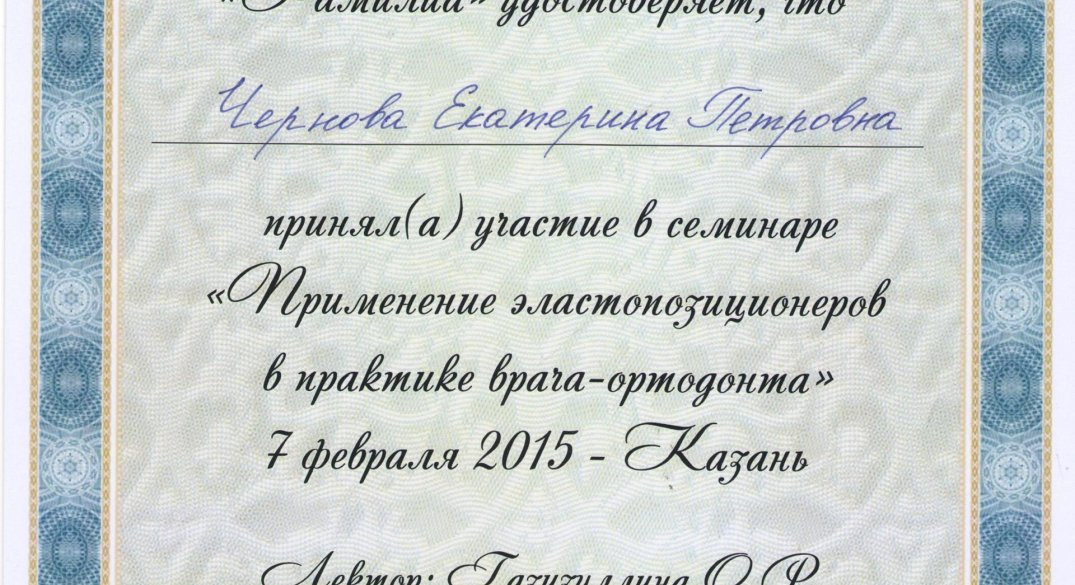 «Фамилия» удостоверяет, что
Чернова Екатерина Петровна
принял(а) участие в семинаре
«Применение эластопозиционеров
в практике врача-ортодонта»
7 февраля 2015 - Казань
Лектор: Газизуллина О.Р.